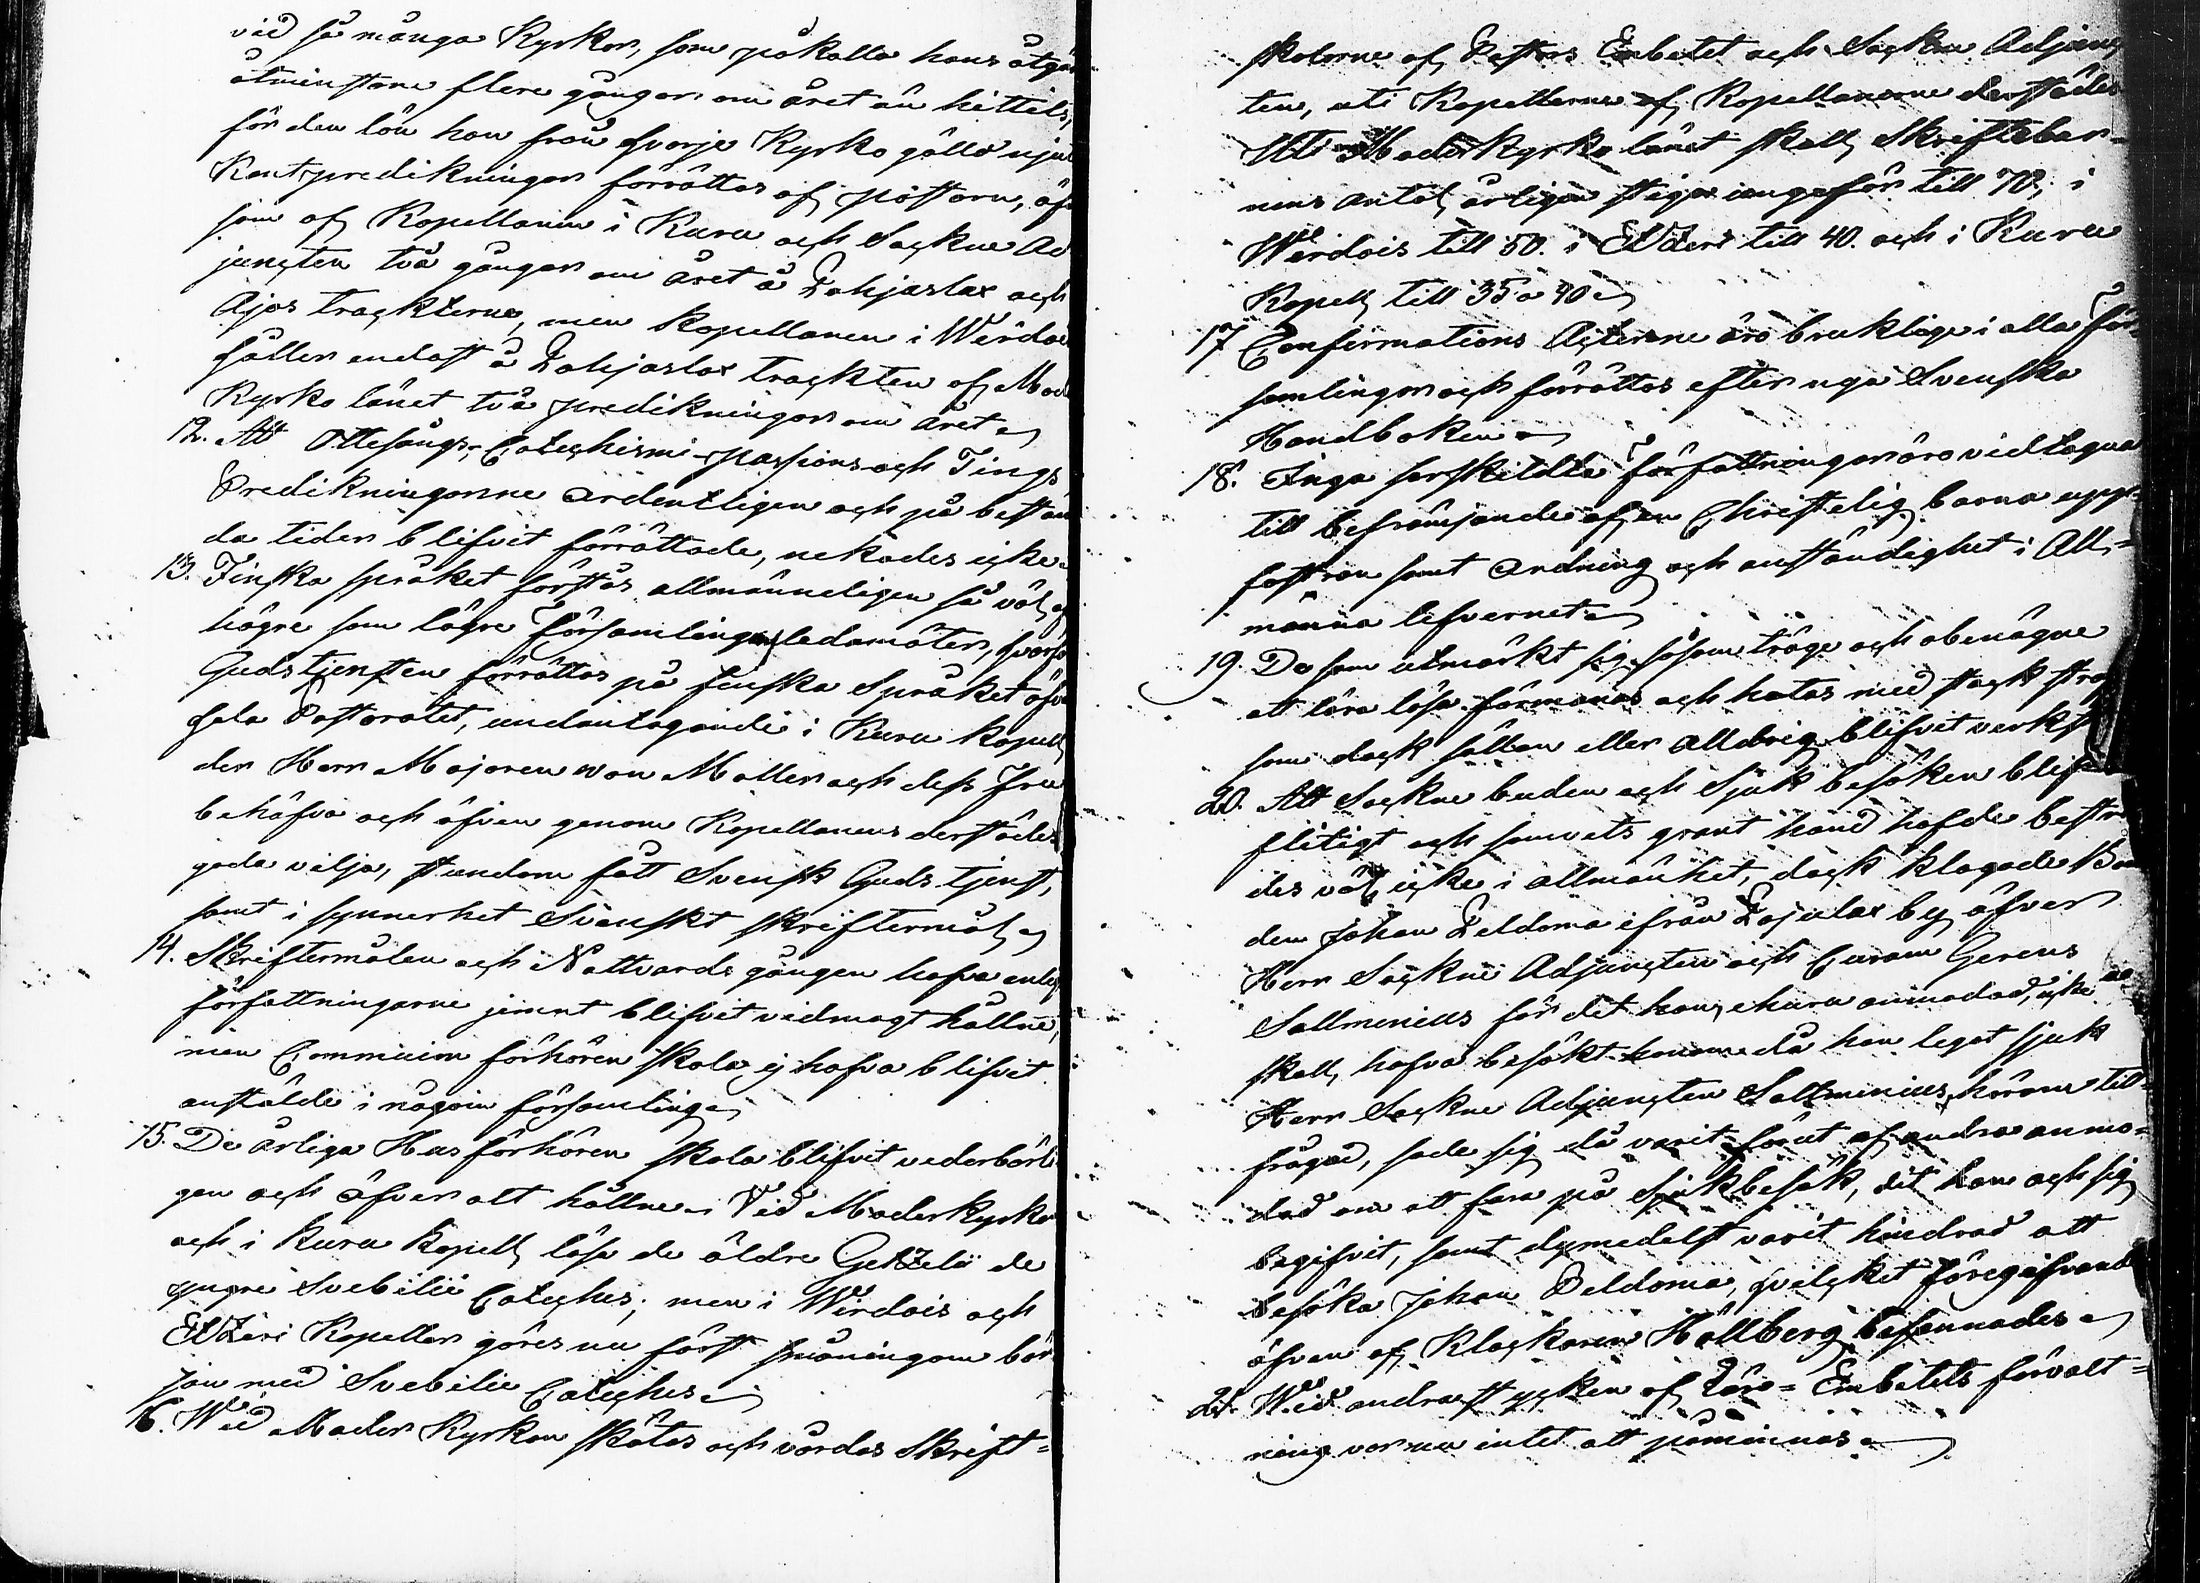 vid så många Kyrkor, som påkalla hans åtgär
åtminstone flere gångor om året än hittils,
för den lön han från hvarje Kyrko gälld njut
Rontpredikningar förrättas af pastorn, äf
som af Kapellanen i Kuru och Sockne Ad
juncten två gångor om året å Lohjaslax och
Ajos trackterne, men Kapellanen i Werdois
håller endast å Lohjaslax trackten af Mod
Kyrko länet två predikningar om året
12. Att Ottesångs, Catechismi- passions- och Tings
Predikningarne ordenteligen och på bestäm
da tider blifvit förrättade, nekades icke
13. Finska språket förstås allmänneligen så väl af
högre som lägre Församlingens ledamöter, hvarfö
Gudstjensten förrättas på finska Språket öfve
hela Pastoratet, undantagande i Kuru kapell
der Herr Majoren von Moller och dess Fru
behöfva och äfven genom Kapellanens derstädes
goda vilja, stundom fått Svensk Guds tjenst,
samt i synnerhet Svenskt skriftermål
14. Skriftermålen och Nattvards gången hafva enlig
författningarne jemnt blifvit vidmagt hållne,
men Communion förhören skola ej hafva blifvit
anstälde i någon församling
15. De årliga Husförhören skola blifvit vederbörli
gen och öfver alt hållne. Vid Moderkyrkan
och i Kuru Kapell läsa de äldre Getzelii de
yngre Svebilii Catechis; men i Wirdois och
Etzeri Kapeller göres nu först småningom bör
jan med Svebilii Catechis
16. Wid Moder Kyrkan skötas och vårdas Skrift-
skolorne af Pastors Embetet och Sockne Adjunc
ten, uti Kapellerne af Kapellanerne derstädes
Uti Moderkyrko länet skall Skriftebar-
nens antal årligen stiga ungefär till 70, i
Wirdois till 50. i Etzeri till 40. och i Kuru
Kapell till 35 a 40
17 Confirmations Acterne äro bruklige i alla För-
samlingar och förrättas efter nya Svenska
Handboken
18. Inga särskildta författningar äro vidtagna
till befrämjande af en Christelig barna upp-
fostran samt ordning och anständighet i All-
männa lefvernet
19. De som utmärkt sig såsom tröge och obenägne
att lära läsa förmanas och hotas med stock straf
som dock sällan eller alldrig blifvit verkst
20. Att Sockne buden och Sjuk besöken blifvit
flitigt och samvets grant hand hafde bestri
des väl icke i allmänhet, dock klagade Bon
den Johan Peldoma ifrån Lajulax by öfver
Herr Sockne Adjuncten och Curam Gerens
Sallmenius för det han, ehuru anmodad, icke
skall hafva besökt honom då han legat sjuk
Herr Sockne Adjuncten Sallmenius, härom till-
frågad, sade sig då varit förut af andra anmo-
dad om att fara på Sjukbesök, dit han och sig
begifvit, samt dymedelst varit hindrad att
besöka Johan Peldoma, hvilcket föregifvande
äfven af Klockaren Hällberg besannades
21. Wid andra stycken af Läro-Embetets förvalt-
ning var nu intet att påminnas